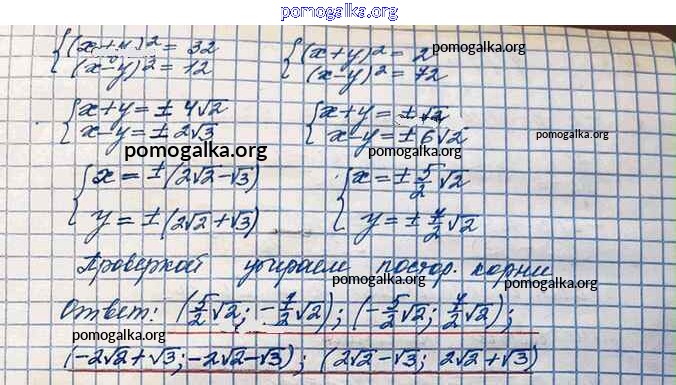 pomogalka.org
{ (x+y)² = 32 { (x+y)² = 2 pomogalka.org
(x-y)² = 12 (x-y)² = 72
{ x+y = ± 4√2 { x+y = ±√2
x-y = ± 2√3 x-y = ± 6√2 pomogalka.org
pomogalka.org pomogalka.org
{ x = ± (2√2-√3) { x = ± 5/2 √2
y = ± (2√2+√3) y = ± 7/2 √2
Проверкой убираем постор. корни
pomogalka.org pomogalka.org
Ответ: (5/2 √2; -7/2 √2); (-5/2 √2; 7/2 √2);
pomogalka.org
(-2√2+√3; -2√2-√3); (2√2-√3; 2√2+√3)